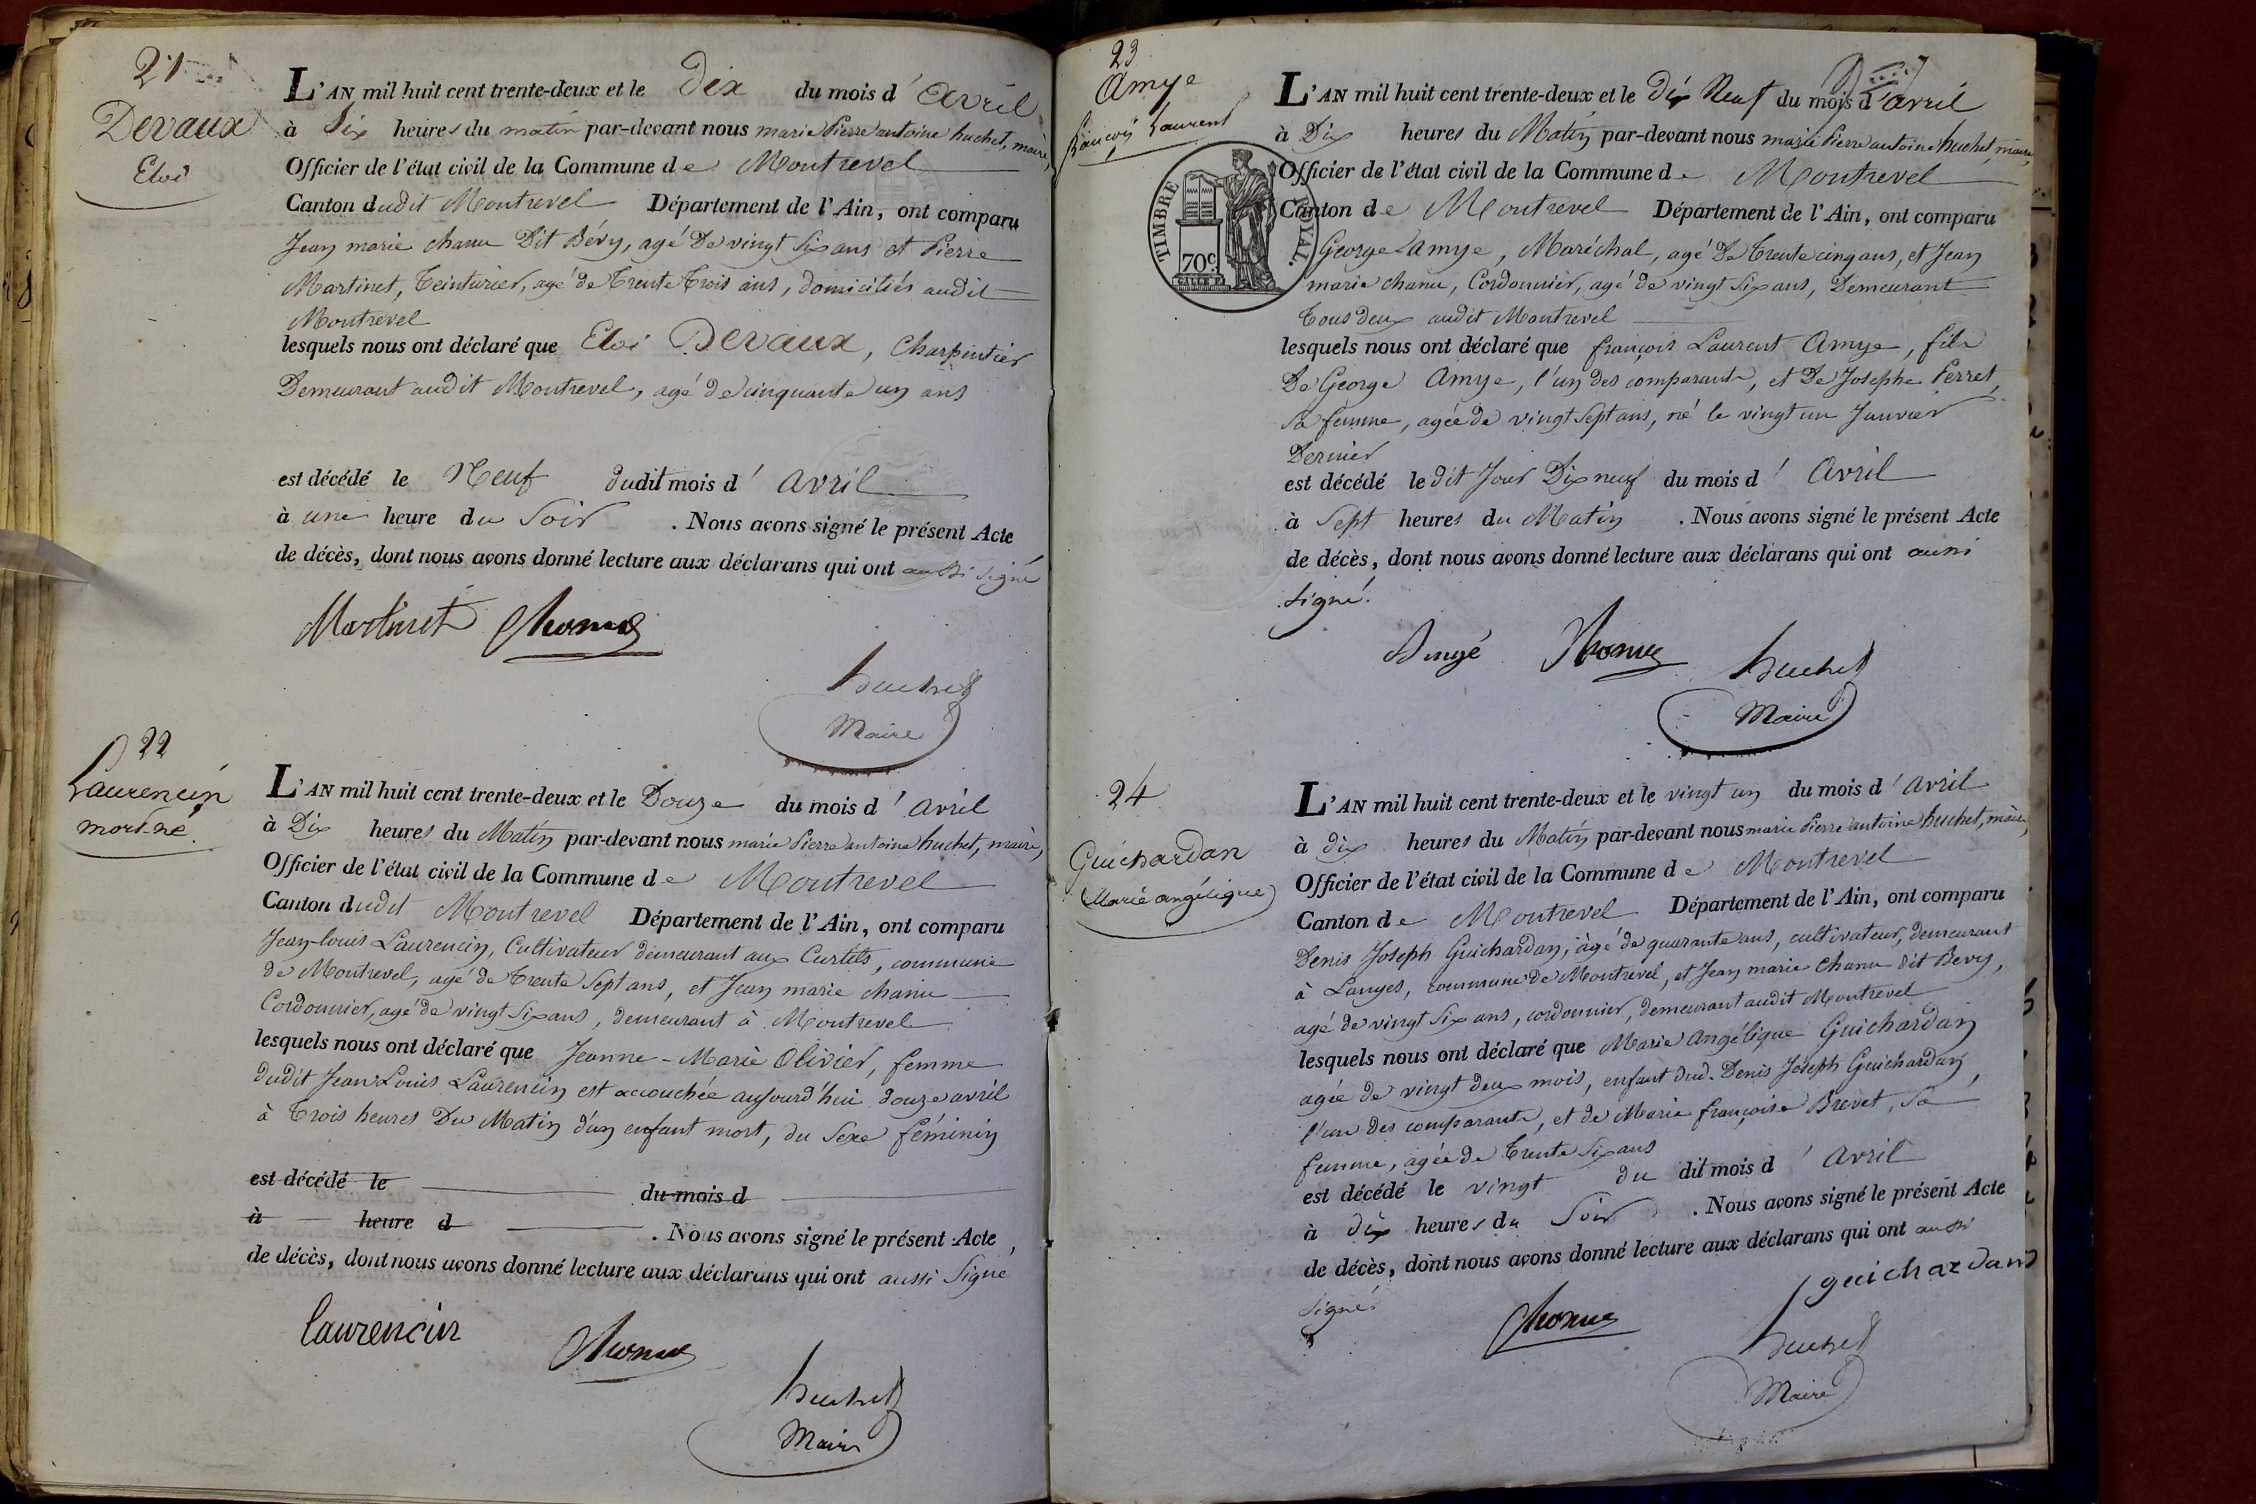 21
Devaux
Eloi
L'AN mil huit cent trente-deux et le dix du mois d'avril
à Six heures du matin par-devant nous marie Pierre antoine huchet, maire,
Officier de l'état civil de la Commune de Montrevel
Canton dudit Montrevel Département de l'Ain, ont comparu
Jean marie chanu Dit Bévy, agé De vingt Six ans et Pierre
Martinet, Teinturier, agé de Trente Trois ans, domiciliés audit
Montrevel
lesquels nous ont déclaré que Eloi Devaux, Charpentier
Demeurant audit Montrevel, agé de cinquante un ans
est décédé le Neuf dudit mois d'avril
à une heure du Soir. Nous avons signé le présent Acte
de décès, dont nous avons donné lecture aux déclarans qui ont aussi signé
Martinet
huchet
Maire
22
Laurencin
mort-né
L'AN mil huit cent trente-deux et le Douze du mois d'avril
à Dix heures du Matin par-devant nous marie Pierre antoine huchet, maire,
Officier de l'état civil de la Commune de Montrevel
Canton dudit Montrevel Département de l'Ain, ont comparu
Jean-louis Laurencin, Cultivateur demeurant aux Curtets, commune
de Montrevel, agé de Trente Sept ans, et Jean marie chanu
Cordonnier, agé de vingt Six ans, demeurant à Montrevel
lesquels nous ont déclaré que Jeanne-Marie Olivier, femme
dudit Jean Louis Laurencin est accouchée aujourd'hui douze avril
à Trois heures Du Matin d'un enfant mort, du Sexe féminin
est décédé le du mois d
à heure d . Nous avons signé le présent Acte
de décès, dont nous avons donné lecture aux déclarans qui ont aussi Signé
Laurencin
huchet
Maire
23
Amye
François Laurent
TIMBRE ROYAL.
70c.
L'AN mil huit cent trente-deux et le Dix Neuf du mois d'avril
à Dix heures du Matin par-devant nous marie Pierre antoine huchet, maire,
Officier de l'état civil de la Commune de Montrevel
Canton de Montrevel Département de l'Ain, ont comparu
George amye, Maréchal, agé De Trente cinq ans, et Jean
marie chanu, Cordonnier, agé de vingt Six ans, Demeurant
Tous deux audit Montrevel
lesquels nous ont déclaré que françois Laurent Amye, fils
De George Amye, l'un des comparants, et De Josephe Perret,
Sa femme, agée de vingt Sept ans, né le vingt un Janvier
Dernier
est décédé le dit Jour Dix neuf du mois d'avril
à Sept heures du Matin. Nous avons signé le présent Acte
de décès, dont nous avons donné lecture aux déclarans qui ont aussi
signé.
huchet
Maire
24
Guichardan
Marie angélique
L'AN mil huit cent trente-deux et le vingt un du mois d'avril
à dix heures du Matin par-devant nous marie Pierre antoine huchet, maire,
Officier de l'état civil de la Commune de Montrevel
Canton de Montrevel Département de l'Ain, ont comparu
Denis Joseph Guichardan, agé de quarante ans, cultivateur, demeurant
à Langes, commune de Montrevel, et Jean marie chanu dit Bevy,
agé de vingt Six ans, cordonnier, demeurant audit Montrevel
lesquels nous ont déclaré que Marie Angélique Guichardan
agée de vingt deux mois, enfant dud. Denis Joseph Guichardan,
l'un des comparants, et de Marie françoise Brevet, Sa
femme, agée de Trente Six ans
est décédé le vingt du dit mois d'avril
à dix heures du Soir. Nous avons signé le présent Acte
de décès, dont nous avons donné lecture aux déclarans qui ont aussi
signé.
guichardan
huchet
Maire